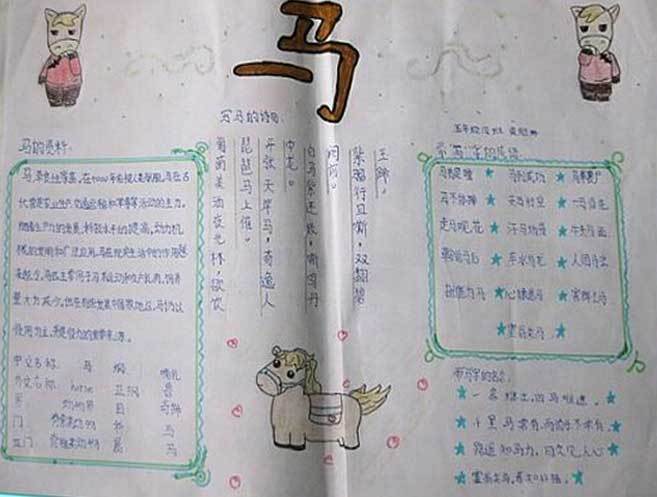 马
写马的诗句:
玉蹄。
紫骝行且嘶,双翻碧
问何。
白马常还救,嘶鸣丹
中老。
平张天岸马,奇逸人
琵琶马上催。
葡萄美酒夜光杯,欲饮
马的资料:
马,草食性家畜。在4000年前被人类驯服,马在古
代曾是农业生产、交通运输和军事等活动的主力。
随着生产力的发展,科技水平的提高,动力机
械的发明和广泛应用,马在现实生活中的作用越
来越少,马匹主要用于马术运动和生产乳肉,饲养
量大为减少。但在有些发展中国家和地区,马仍以
役用为主,并是役力的重要来源。
中文名称: 马 纲: 哺乳
外文名称: horse 亚纲: 兽
界: 动物界 目: 奇蹄
门: 脊索动物 科: 马
亚门: 脊椎动物 属: 马
五年级
带“马”字的成语:
马到成功
马不停蹄 天马行空 一马当先
走马观花 汗马功劳 牛头马面
鞍前马后 车水马龙 人困马乏
指鹿为马 心猿意马 害群之马
带马字的名言:
一言既出,四马难追。
千里马常有,而伯乐不常有。
路遥知马力,日久见人心